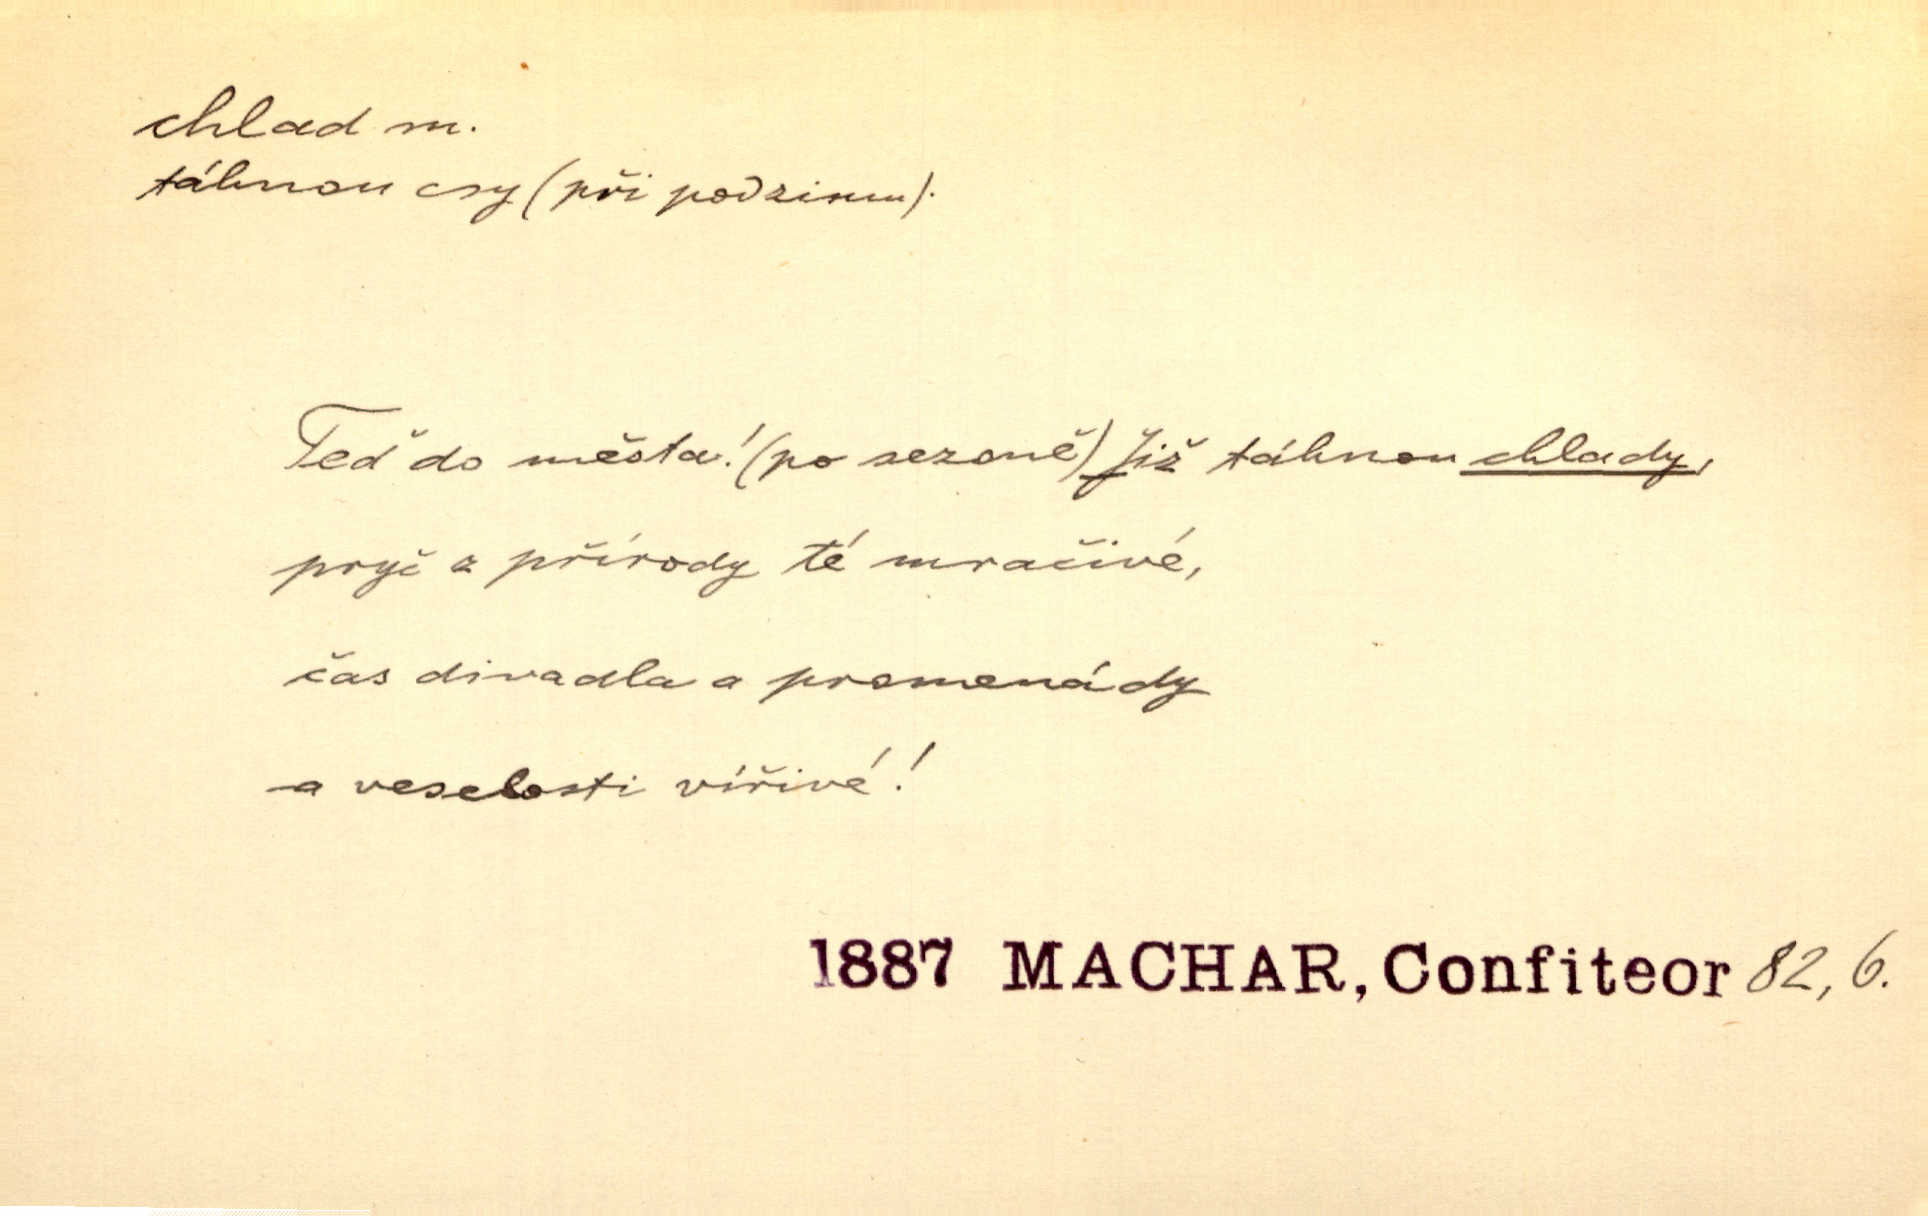 chlad m.
táhnou csy (při podzimu).
Teď do města! (po sezoně) Již táhnou chlady,
pryč z přírody té mračivé,
čas divadla a promenády
a veselosti vířivé!
1887 MACHAR, Confiteor 82, 6.